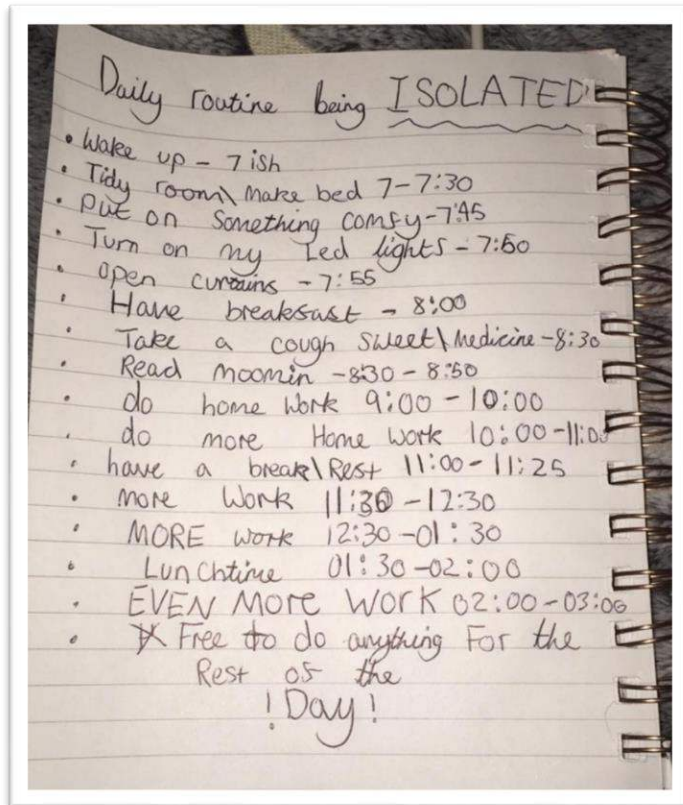 Daily routine being ISOLATED
• Wake up - 7 ish
• Tidy room\ Make bed 7-7:30
• Put on Something comfy-7:45
• Turn on my Led lights - 7:50
• open curtains - 7:55
• Have breakfast - 8:00
• Take a cough Sweet\ Medicine -8:30
• Read moomin -8:30 - 8:50
• do home Work 9:00 - 10:00
• do more Home Work 10:00 -11:00
• have a break\ Rest 11:00 - 11:25
• more Work 11:30 -12:30
• MORE work 12:30 -01:30
• Lunchtime 01:30 -02:00
• EVEN MORE WORK 02:00-03:00
• Free to do anything For the
Rest of the
! Day !